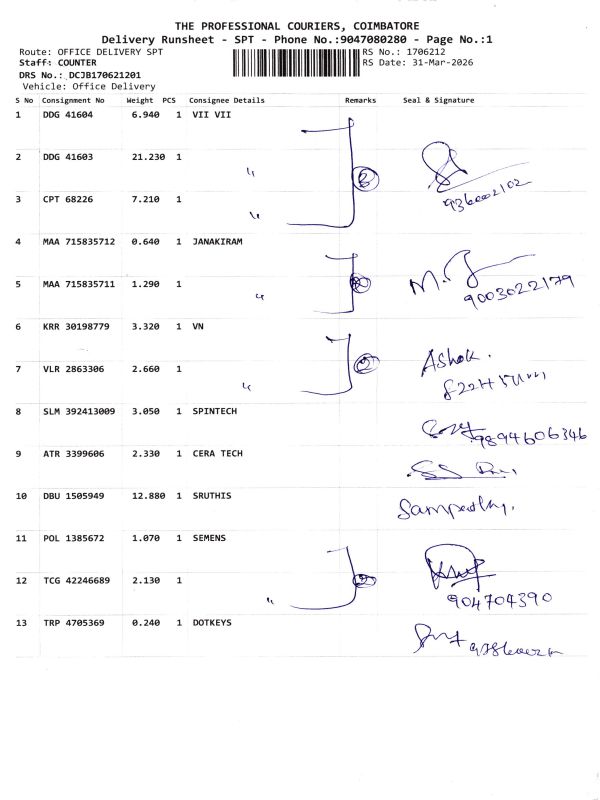 THE PROFESSIONAL COURIERS, COIMBATORE
Delivery Runsheet - SPT - Phone No.:9047080280 - Page No.:1
Route: OFFICE DELIVERY SPT RS No.: 1706212
Staff: COUNTER RS Date: 31-Mar-2026
DRS No.: DCJB170621201
Vehicle: Office Delivery
S No Consignment No Weight PCS Consignee Details Remarks Seal & Signature
1 DDG 41604 6.940 1 VII VII
2 DDG 41603 21.230 1 "
3 CPT 68226 7.210 1 "
4 MAA 715835712 0.640 1 JANAKIRAM
5 MAA 715835711 1.290 1 " 9003022179
6 KRR 30198779 3.320 1 VN Ashok.
7 VLR 2863306 2.660 1 "
8 SLM 392413009 3.050 1 SPINTECH 9894606346
9 ATR 3399606 2.330 1 CERA TECH
10 DBU 1505949 12.880 1 SRUTHIS
11 POL 1385672 1.070 1 SEMENS
12 TCG 42246689 2.130 1 " 904704390
13 TRP 4705369 0.240 1 DOTKEYS